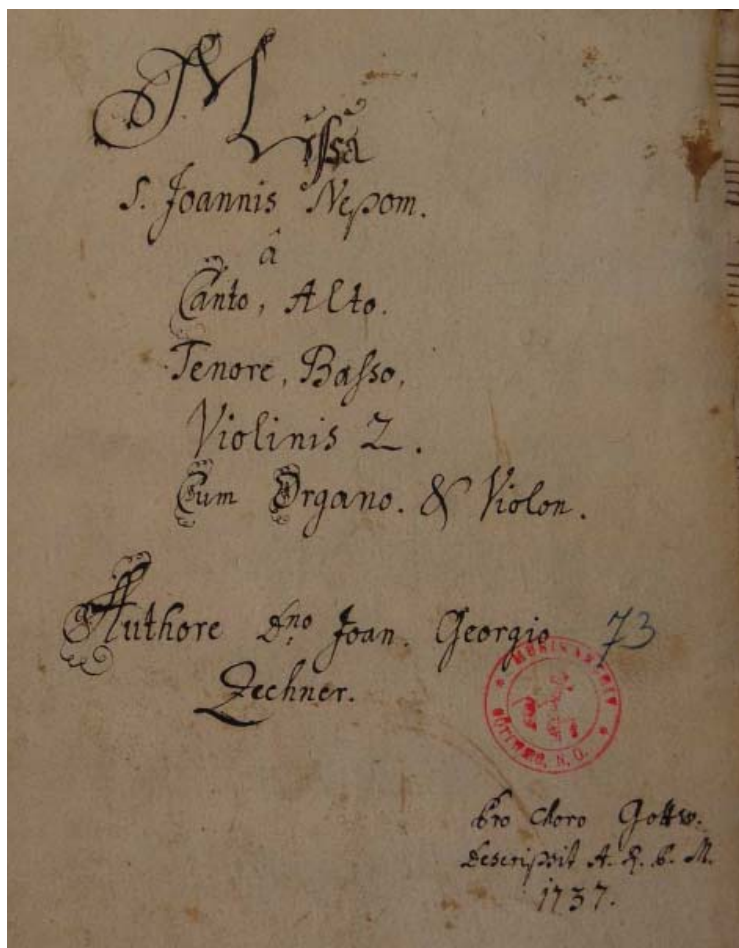 Missa
S. Joannis Nepom.
â
Canto, Alto.
Tenore, Basso,
Violinis 2.
Cum Organo. & Violon.
Authore Dno. Joan. Georgio 73
Zechner.
MUSIKARCHIV
GÖTTWEIG, N.Ö.
Pro Choro Gottw.
Descripsit A. R. P. M.
1737.